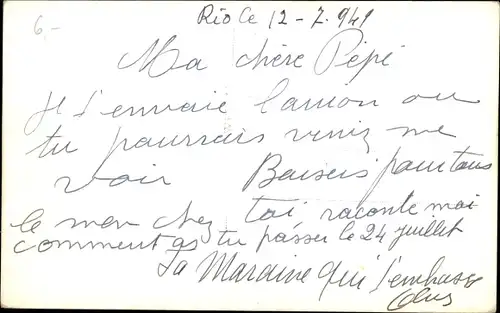 6.-
Rio le 12-7.941
Ma chère Pépé
Je t'envoie l'avion ou
tu pourrais venir me
voir Baisers pour tous
le mon chez toi raconte moi
comment as tu passer le 24 juillet
Ta Maraine qui t'embrasse